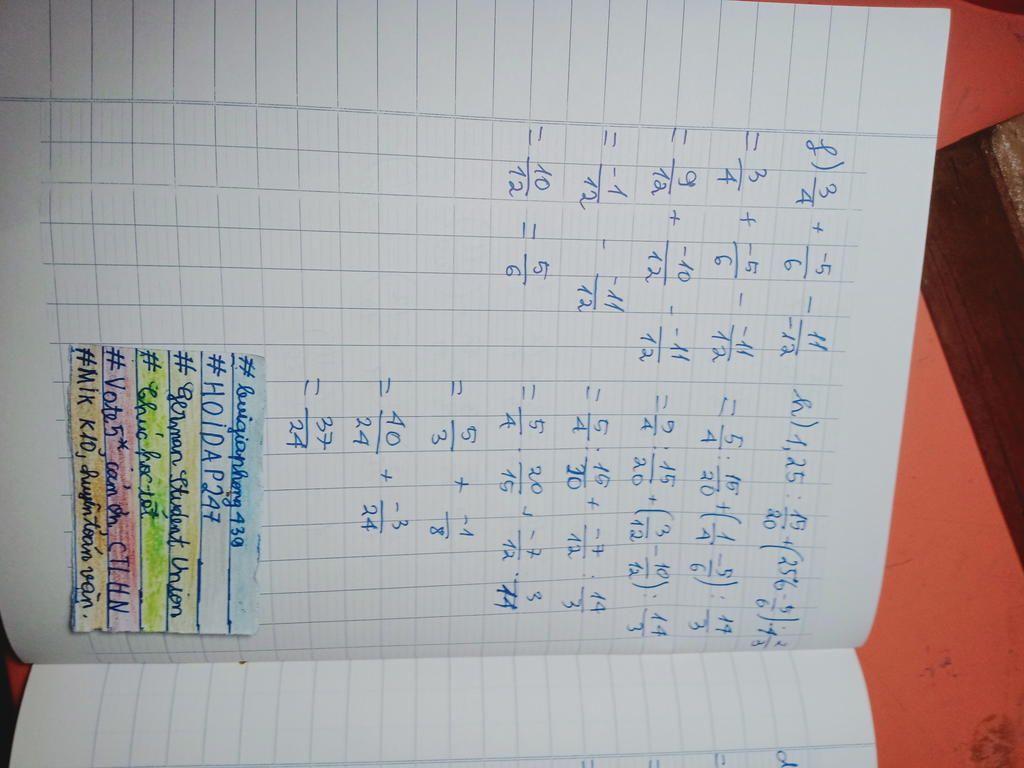 f) 3/4 + -5/6 - 11/-12
= 3/4 + -5/6 - -11/12
= 9/12 + -10/12 - -11/12
= -1/12 - -11/12
= 10/12 = 5/6
h) 1,25 : 15/20 + (25% - 5/6) : 4 2/3
= 5/4 : 15/20 + (1/4 - 5/6) : 14/3
= 5/4 : 15/20 + (3/12 - 10/12) : 14/3
= 5/4 : 15/20 + -7/12 : 14/3
= 5/4 . 20/15 + -7/12 . 3/14
= 5/3 + -1/8
= 40/24 + -3/24
= 37/24
# HOIDAP247
# German Student Union
# Chúc học tốt
# Vote 5* cảm ơn, CTLHN
#Mik K10, chuyên toán văn.